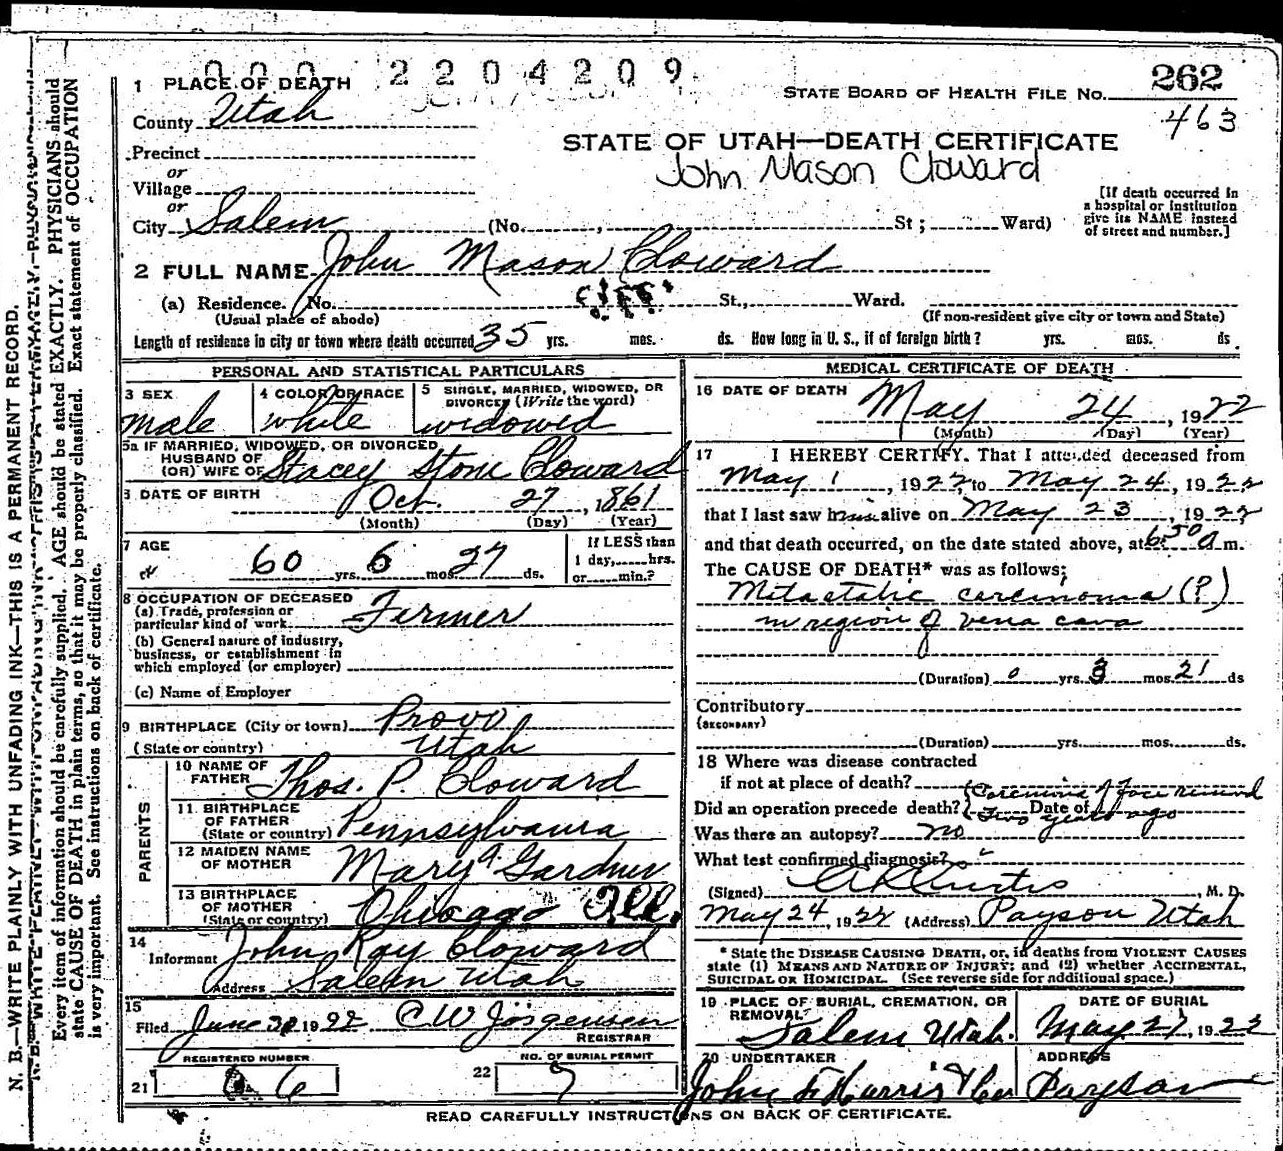 000 2204209
1 PLACE OF DEATH
STATE BOARD OF HEALTH FILE No. 262
463
County Utah
STATE OF UTAH—DEATH CERTIFICATE
Precinct
John Mason Cloward
or
Village
or
City Salem (No. , St ; Ward)
[If death occurred in
a hospital or institution
give its NAME instead
of street and number.]
2 FULL NAME John Mason Cloward
(a) Residence. No. St., Ward.
(Usual place of abode) (If non-resident give city or town and State)
Length of residence in city or town where death occurred 35 yrs. mos. ds. How long in U. S., if of foreign birth? yrs. mos. ds.
PERSONAL AND STATISTICAL PARTICULARS
3 SEX male
4 COLOR OR RACE white
5 SINGLE, MARRIED, WIDOWED, OR
DIVORCED (Write the word)
widowed
5a IF MARRIED, WIDOWED, OR DIVORCED
HUSBAND OF
(OR) WIFE OF Stacey Stone Cloward
6 DATE OF BIRTH Oct. 27, 1861
(Month) (Day) (Year)
7 AGE
60 yrs. 6 mos. 27 ds.
If LESS than
1 day, hrs.
or min.?
8 OCCUPATION OF DECEASED
(a) Trade, profession or
particular kind of work Farmer
(b) General nature of industry,
business, or establishment in
which employed (or employer)
(c) Name of Employer
9 BIRTHPLACE (City or town) Provo
(State or country) Utah
PARENTS
10 NAME OF
FATHER Thos. P. Cloward
11 BIRTHPLACE
OF FATHER
(State or country) Pennsylvania
12 MAIDEN NAME
OF MOTHER Mary A. Gardner
13 BIRTHPLACE
OF MOTHER
(State or country) Chicago Ill.
14
Informant John Ray Cloward
Address Salem Utah
15
Filed June 1922 C W Jorgensen
REGISTRAR
REGISTERED NUMBER
21 6
NO. OF BURIAL PERMIT
22 7
MEDICAL CERTIFICATE OF DEATH
16 DATE OF DEATH
May 24, 1922
(Month) (Day) (Year)
17 I HEREBY CERTIFY, That I attended deceased from
May 1, 1922, to May 24, 1922
that I last saw him alive on May 23, 1922
and that death occurred, on the date stated above, at 6 50 a m.
The CAUSE OF DEATH* was as follows:
Metastatic carcinoma (?)
in region of vena cava
(Duration) 0 yrs. 3 mos. 21 ds
Contributory
(SECONDARY)
(Duration) yrs. mos. ds.
18 Where was disease contracted
if not at place of death?
Did an operation precede death? Date of
(Carcinoma of face removed
two years ago
Was there an autopsy? no
What test confirmed diagnosis?
(Signed) A K Curtis, M. D.
May 24, 1922 (Address) Payson Utah
* State the DISEASE CAUSING DEATH, or, in deaths from VIOLENT CAUSES
state (1) MEANS AND NATURE OF INJURY; and (2) whether ACCIDENTAL,
SUICIDAL OR HOMICIDAL. (See reverse side for additional space.)
19 PLACE OF BURIAL, CREMATION, OR
REMOVAL
Salem Utah.
DATE OF BURIAL
May 27, 1922
20 UNDERTAKER
John F Harris & Co
ADDRESS
Payson
READ CAREFULLY INSTRUCTIONS ON BACK OF CERTIFICATE.
N. B.—WRITE PLAINLY WITH UNFADING INK—THIS IS A PERMANENT RECORD.
Every item of information should be carefully supplied. AGE should be stated EXACTLY. PHYSICIANS should
state CAUSE OF DEATH in plain terms, so that it may be properly classified. Exact statement of OCCUPATION
is very important. See instructions on back of certificate.